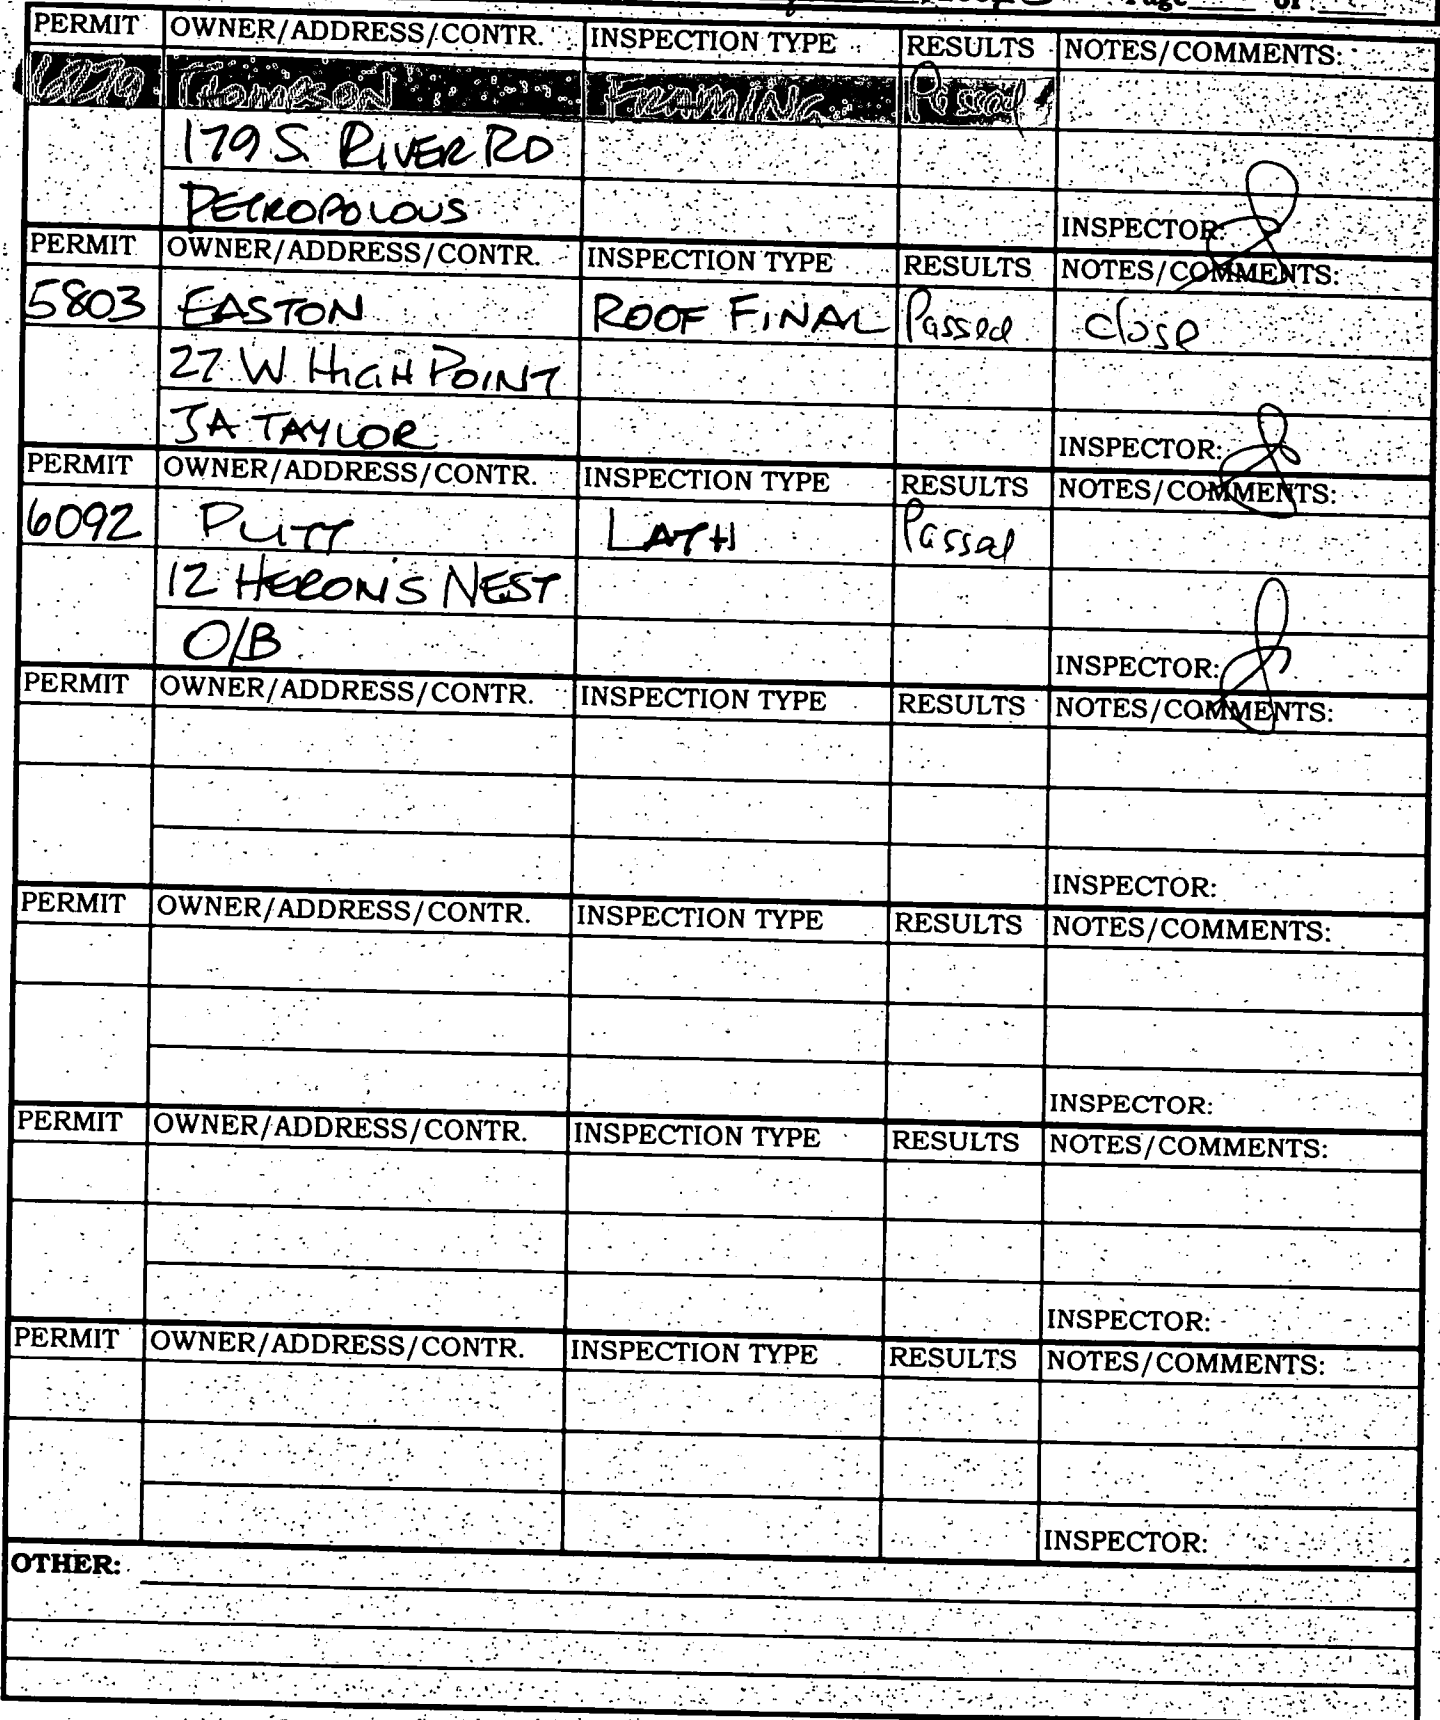 Page of
PERMIT OWNER/ADDRESS/CONTR. INSPECTION TYPE RESULTS NOTES/COMMENTS:
FRAMING
179 S. RIVER RD
PETROPOLOUS INSPECTOR:
PERMIT OWNER/ADDRESS/CONTR. INSPECTION TYPE RESULTS NOTES/COMMENTS:
5803 EASTON ROOF FINAL Passed close
27 W HIGH POINT
JA TAYLOR INSPECTOR:
PERMIT OWNER/ADDRESS/CONTR. INSPECTION TYPE RESULTS NOTES/COMMENTS:
6092 PUTT LATH Passed
12 HERON'S NEST
O/B INSPECTOR:
PERMIT OWNER/ADDRESS/CONTR. INSPECTION TYPE RESULTS NOTES/COMMENTS:
INSPECTOR:
PERMIT OWNER/ADDRESS/CONTR. INSPECTION TYPE RESULTS NOTES/COMMENTS:
INSPECTOR:
PERMIT OWNER/ADDRESS/CONTR. INSPECTION TYPE RESULTS NOTES/COMMENTS:
INSPECTOR:
PERMIT OWNER/ADDRESS/CONTR. INSPECTION TYPE RESULTS NOTES/COMMENTS:
INSPECTOR:
OTHER: